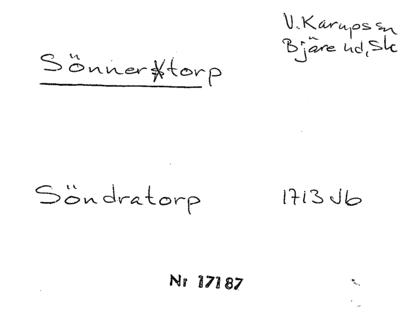 V. Karups sn
Bjäre hd, Sk
Sönnertorp
Söndratorp 1713 Jb
Nr 17187